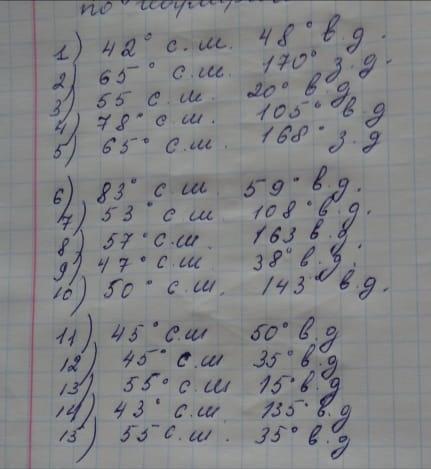 по
1) 42° с.ш. 48° в.д.
2) 65° с.ш. 170° з.д.
3) 55 с.ш. 20° в.д
4) 78° с.ш. 105° в.д
5) 65° с.ш 168° з.д
6) 83° с.ш. 59° в.д.
7) 53° с.ш 108° в.д.
8) 57° с.ш. 163 в.д
9) 47° с.ш 38° в.д.
10) 50° с.ш. 143° в.д.
11) 45° с.ш 50° в.д
12) 45° с.ш 35° в.д
13) 55° с.ш 15° в.д
14) 43° с.ш. 135° в.д
15) 55 с.ш. 35° в.д